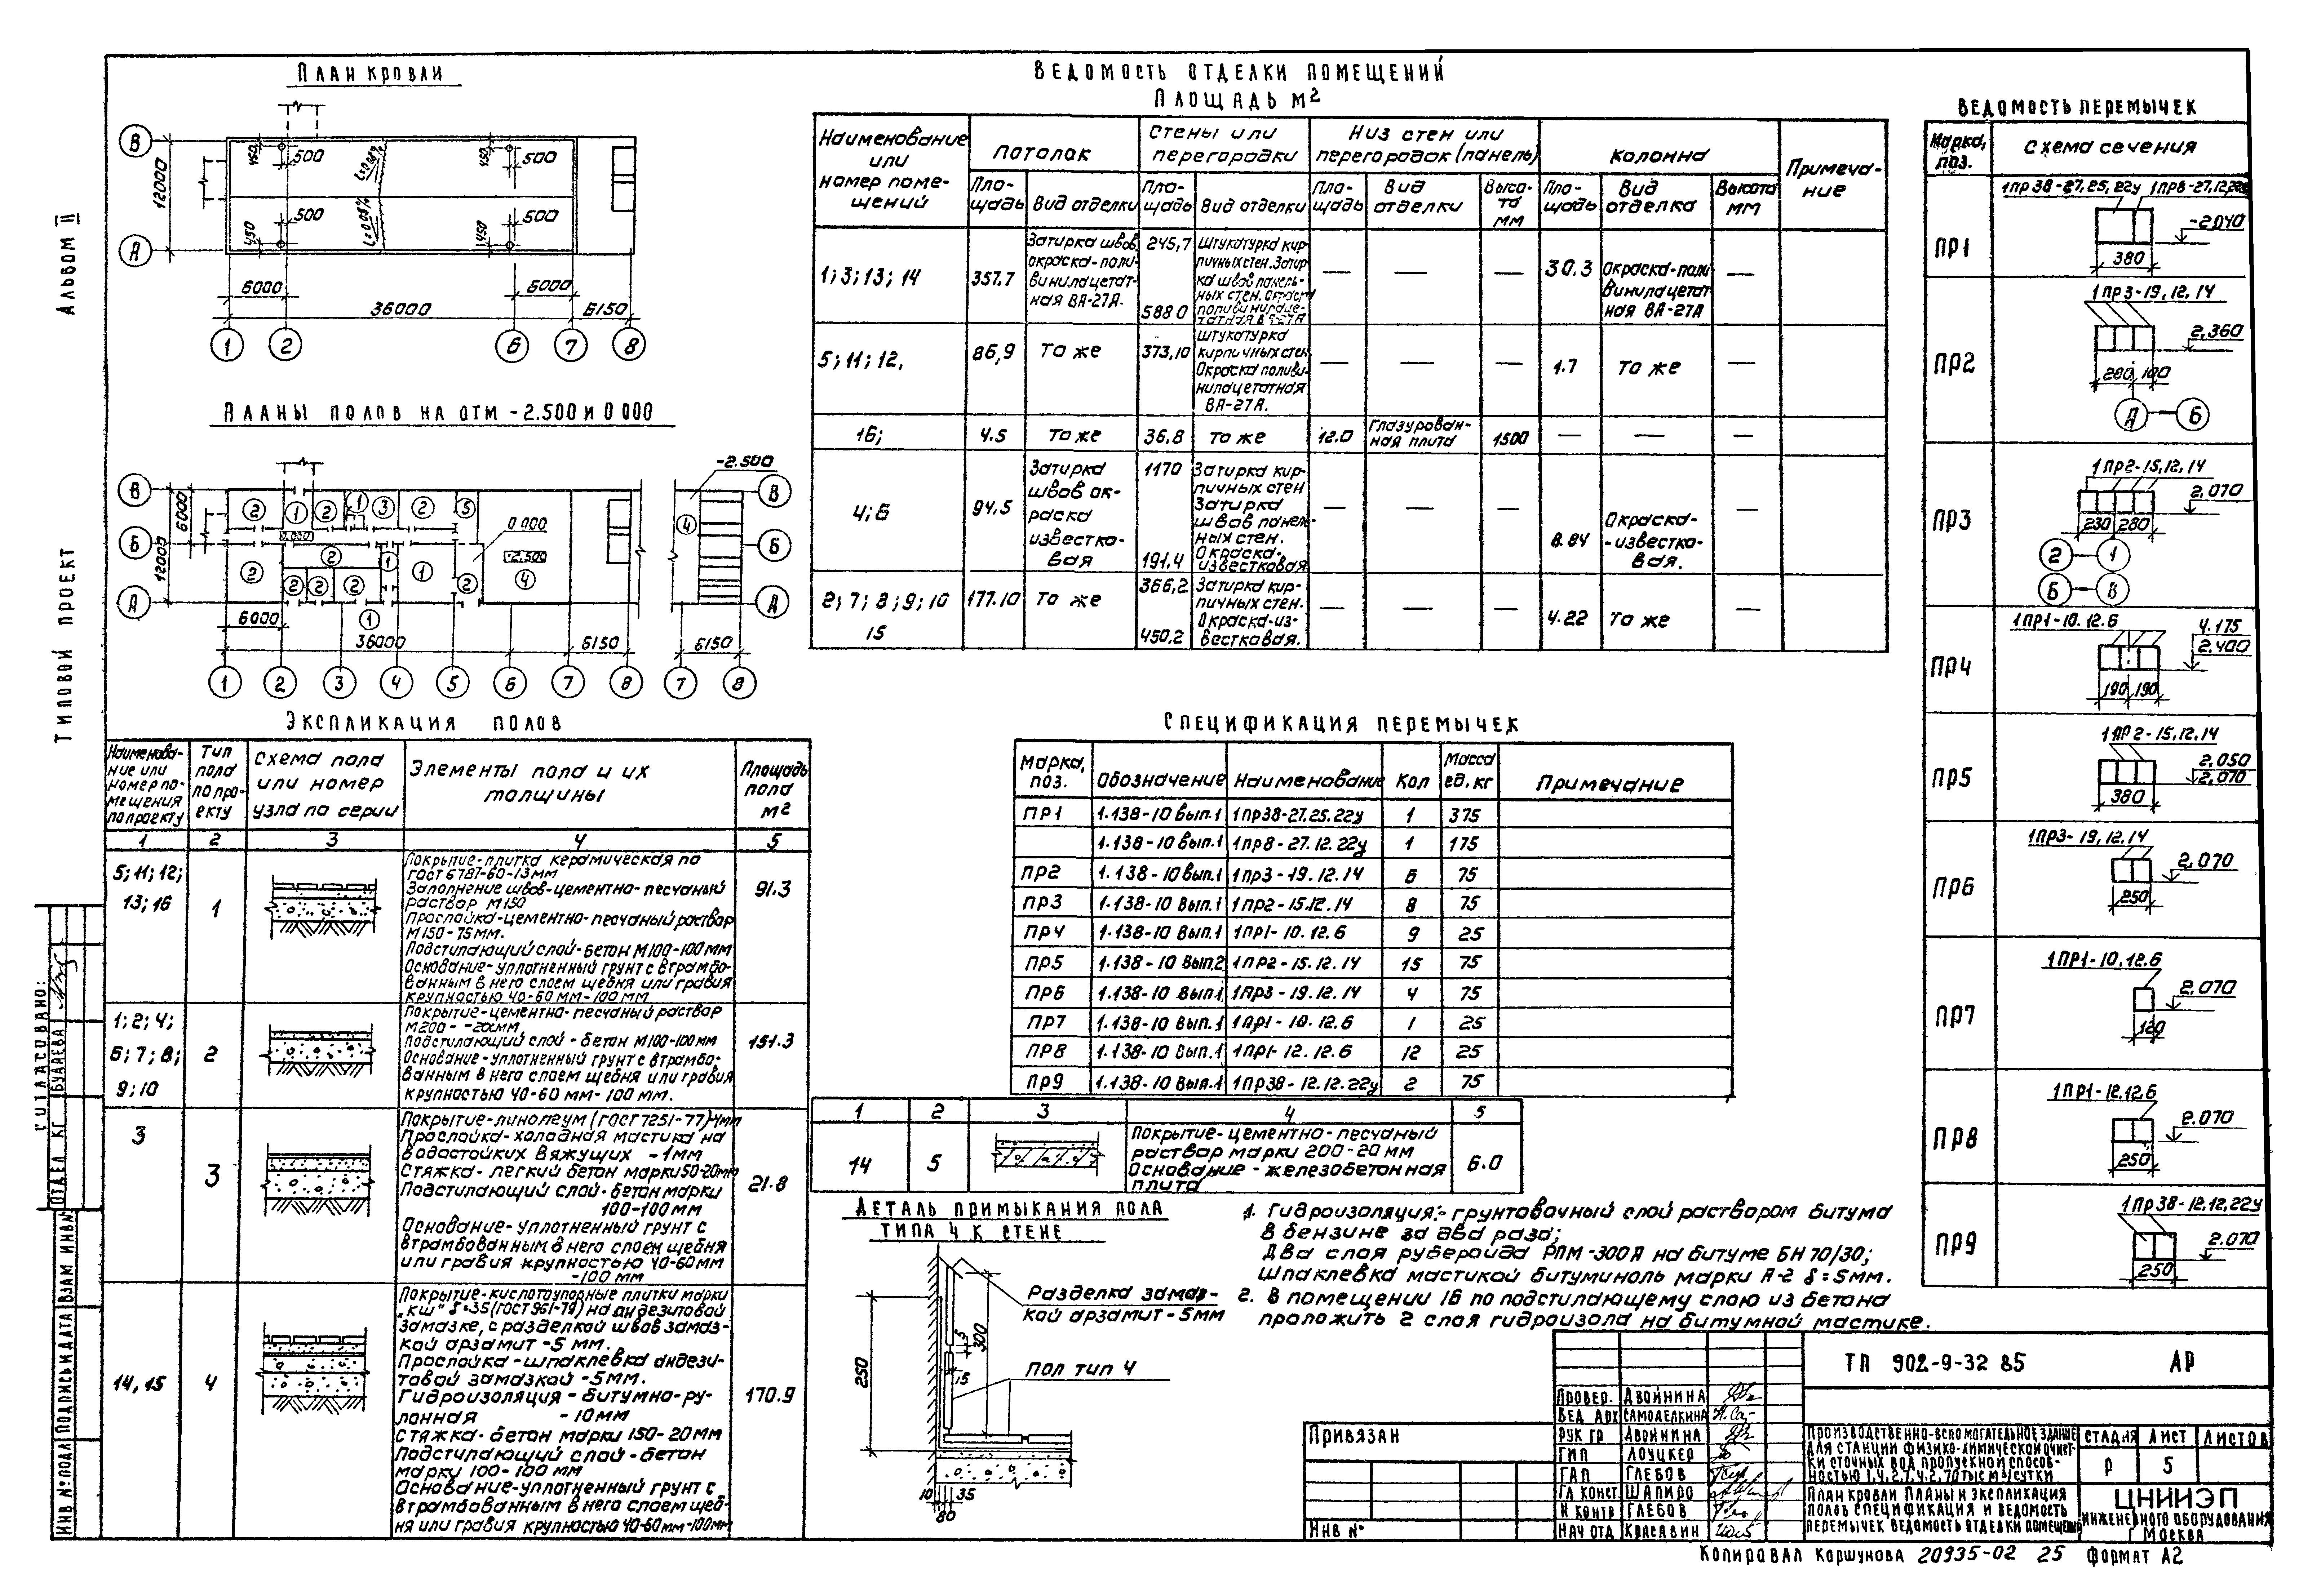 Альбом II
Типовой проект
План кровли
В
А
12000
450
500
450
500
450
500
450
500
6000
6000
36000
6150
1 2 6 7 8
Планы полов на отм -2.500 и 0 000
-2.500
В
Б
А
6000
12000
0 000
-2.500
6000
36000
6150
6150
1 2 3 4 5 6 7 8 7 8
Ведомость отделки помещений
Площадь м²
Наименование или номер помещений
Потолок
Стены или перегородки
Низ стен или перегородок (панель)
Колонна
Примечание
Площадь
Вид отделки
Площадь
Вид отделки
Площадь
Вид отделки
Высота мм
Площадь
Вид отделка
Высота мм
1; 3; 13; 14
357.7
Затирка швов, окраска-поливинилацетатная ВА-27А.
245,7
588 0
Штукатурка кирпичных стен. Затирка швов панельных стен. Окраска поливинилацетатная ВА-27А
— — —
30.3
Окраска-поливинилацетатная ВА-27А
—
5; 11; 12,
86,9
То же
373,10
Штукатурка кирпичных стен. Окраска поливинилацетатная ВА-27А.
— — —
1.7
То же
—
16;
4.5
То же
36.8
То же
12.0
Глазурованная плита
1500
— — —
4; 6
94,5
Затирка швов окраска известковая
1170
191,4
Затирка кирпичных стен Затирка швов панельных стен. Окраска-известковая
— — —
8.84
Окраска--известковая.
—
2; 7; 8; 9; 10
15
177.10
То же
366,2
450.2
Затирка кирпичных стен. Окраска-известковая.
— — —
4.22
То же
—
Ведомость перемычек
Марка, поз.
Схема сечения
ПР1
1ПР38-27,25,22у
1ПР8-27,12,22у
380
ПР2
1ПР3-19,12,14
2,360
280 100
А Б
ПР3
1ПР2-15,12,14
2,070
230 280
2 1
Б В
ПР4
1ПР1-10.12.6
4.175
2.400
190 190
ПР5
1ПР2-15,12.14
2,050
2,070
380
ПР6
1ПР3-19,12.14
2,070
250
ПР7
1ПР1-10.12.6
2,070
120
ПР8
1ПР1-12.12.6
2.070
250
ПР9
1ПР38-12.12,22у
2.070
250
Экспликация полов
Наименование или номер помещения по проекту
Тип пола по проекту
Схема пола или номер узла по серии
Элементы пола и их толщины
Площадь пола м²
1 2 3 4 5
5; 11; 12;
13; 16
1
Покрытие-плитка керамическая по
ГОСТ 6787-60-13мм
Заполнение швов-цементно-песчаный
раствор М150
Прослойка-цементно-песчаный раствор
М150-75мм.
Подстилающий слой-бетон М100-100мм
Основание-уплотненный грунт с втрамбо-
ванным в него слоем щебня или гравия
крупностью 40-60 мм-100 мм
91.3
1; 2; 4;
6; 7; 8;
9; 10
2
Покрытие-цементно-песчаный раствор
М200--20мм
Подстилающий слой-бетон М100-100мм
Основание-уплотненный грунт с втрамбо-
ванным в него слоем щебня или гравия
крупностью 40-60 мм-100 мм.
151.3
3
3
Покрытие-линолеум (ГОСТ 7251-77)-4мм
Прослойка-холодная мастика на
водостойких вяжущих -1мм
Стяжка-легкий бетон марки 50-20мм
Подстилающий слой-бетон марки
100-100мм
Основание-уплотненный грунт с
втрамбованным в него слоем щебня
или гравия крупностью 40-60мм
-100 мм
21.8
14, 15
4
Покрытие-кислотоупорные плитки марки
„КШ" δ=35 (ГОСТ 961-79) на андезитовой
замазке, с разделкой швов замаз-
кой арзамит -5 мм.
Прослойка-шпаклевка андези-
товой замазкой -5мм.
Гидроизоляция-битумно-ру-
лонная -10мм
Стяжка-бетон марки 150-20мм
Подстилающий слой-бетон
марку 100-100 мм
Основание-уплотненный грунт с
втрамбованным в него слоем щеб-
ня или гравия крупностью 40-60мм-100мм
170.9
Спецификация перемычек
Марка, поз. Обозначение Наименование Кол Масса ед. кг Примечание
ПР1 1.138-10 вып.1 1ПР38-27.25.22у 1 375
1.138-10 вып.1 1ПР8-27.12.22у 1 175
ПР2 1.138-10 вып.1 1ПР3-19.12.14 6 75
ПР3 1.138-10 вып.1 1ПР2-15.12.14 8 75
ПР4 1.138-10 вып.1 1ПР1-10.12.6 9 25
ПР5 1.138-10 вып.2 1ПР2-15.12.14 15 75
ПР6 1.138-10 вып.1 1ПР3-19.12.14 4 75
ПР7 1.138-10 вып.1 1ПР1-10.12.6 1 25
ПР8 1.138-10 вып.1 1ПР1-12.12.6 12 25
ПР9 1.138-10 вып.1 1ПР38-12.12.22у 2 75
1 2 3 4 5
14
5
Покрытие-цементно-песчаный
раствор марки 200-20мм
Основание-железобетонная
плита
6.0
Деталь примыкания пола
типа 4 к стене
Разделка замаз-
кой арзамит-5мм
Пол тип 4
250
300
15
10
35
80
1. Гидроизоляция:-грунтовочный слой раствором битума
в бензине за два раза;
Два слоя рубероида РПМ-300А на битуме БН 70/30;
Шпаклевка мастикой битуминоль марки Н-2 δ=5мм.
2. В помещении 16 по подстилающему слою из бетона
проложить 2 слоя гидроизола на битумной мастике.
Привязан
Инв №
Провер. Двойнина
Вед арх Самоделкина
Рук гр Двойнина
ГИП Лоуцкер
ГАП Глебов
Гл конст Шапиро
Н контр Глебов
Нач отд Красавин
ТП 902-9-32 85 АР
Производственно-вспомогательное здание
для станции физико-химической очист-
ки сточных вод пропускной способ-
ностью 1,4, 2,7, 4,2, 7,0 тыс м³/сутки
Стадия Лист Листов
Р 5
План кровли Планы и экспликация
полов спецификация и ведомость
перемычек ведомость отделки помещений
ЦНИИЭП
инженерного оборудования
г Москва
Согласовано:
Отдел КГ Бударева
Инв № подл Подпись и дата Взам инв №
Копировал Коршунова 20935-02 25 формат А2